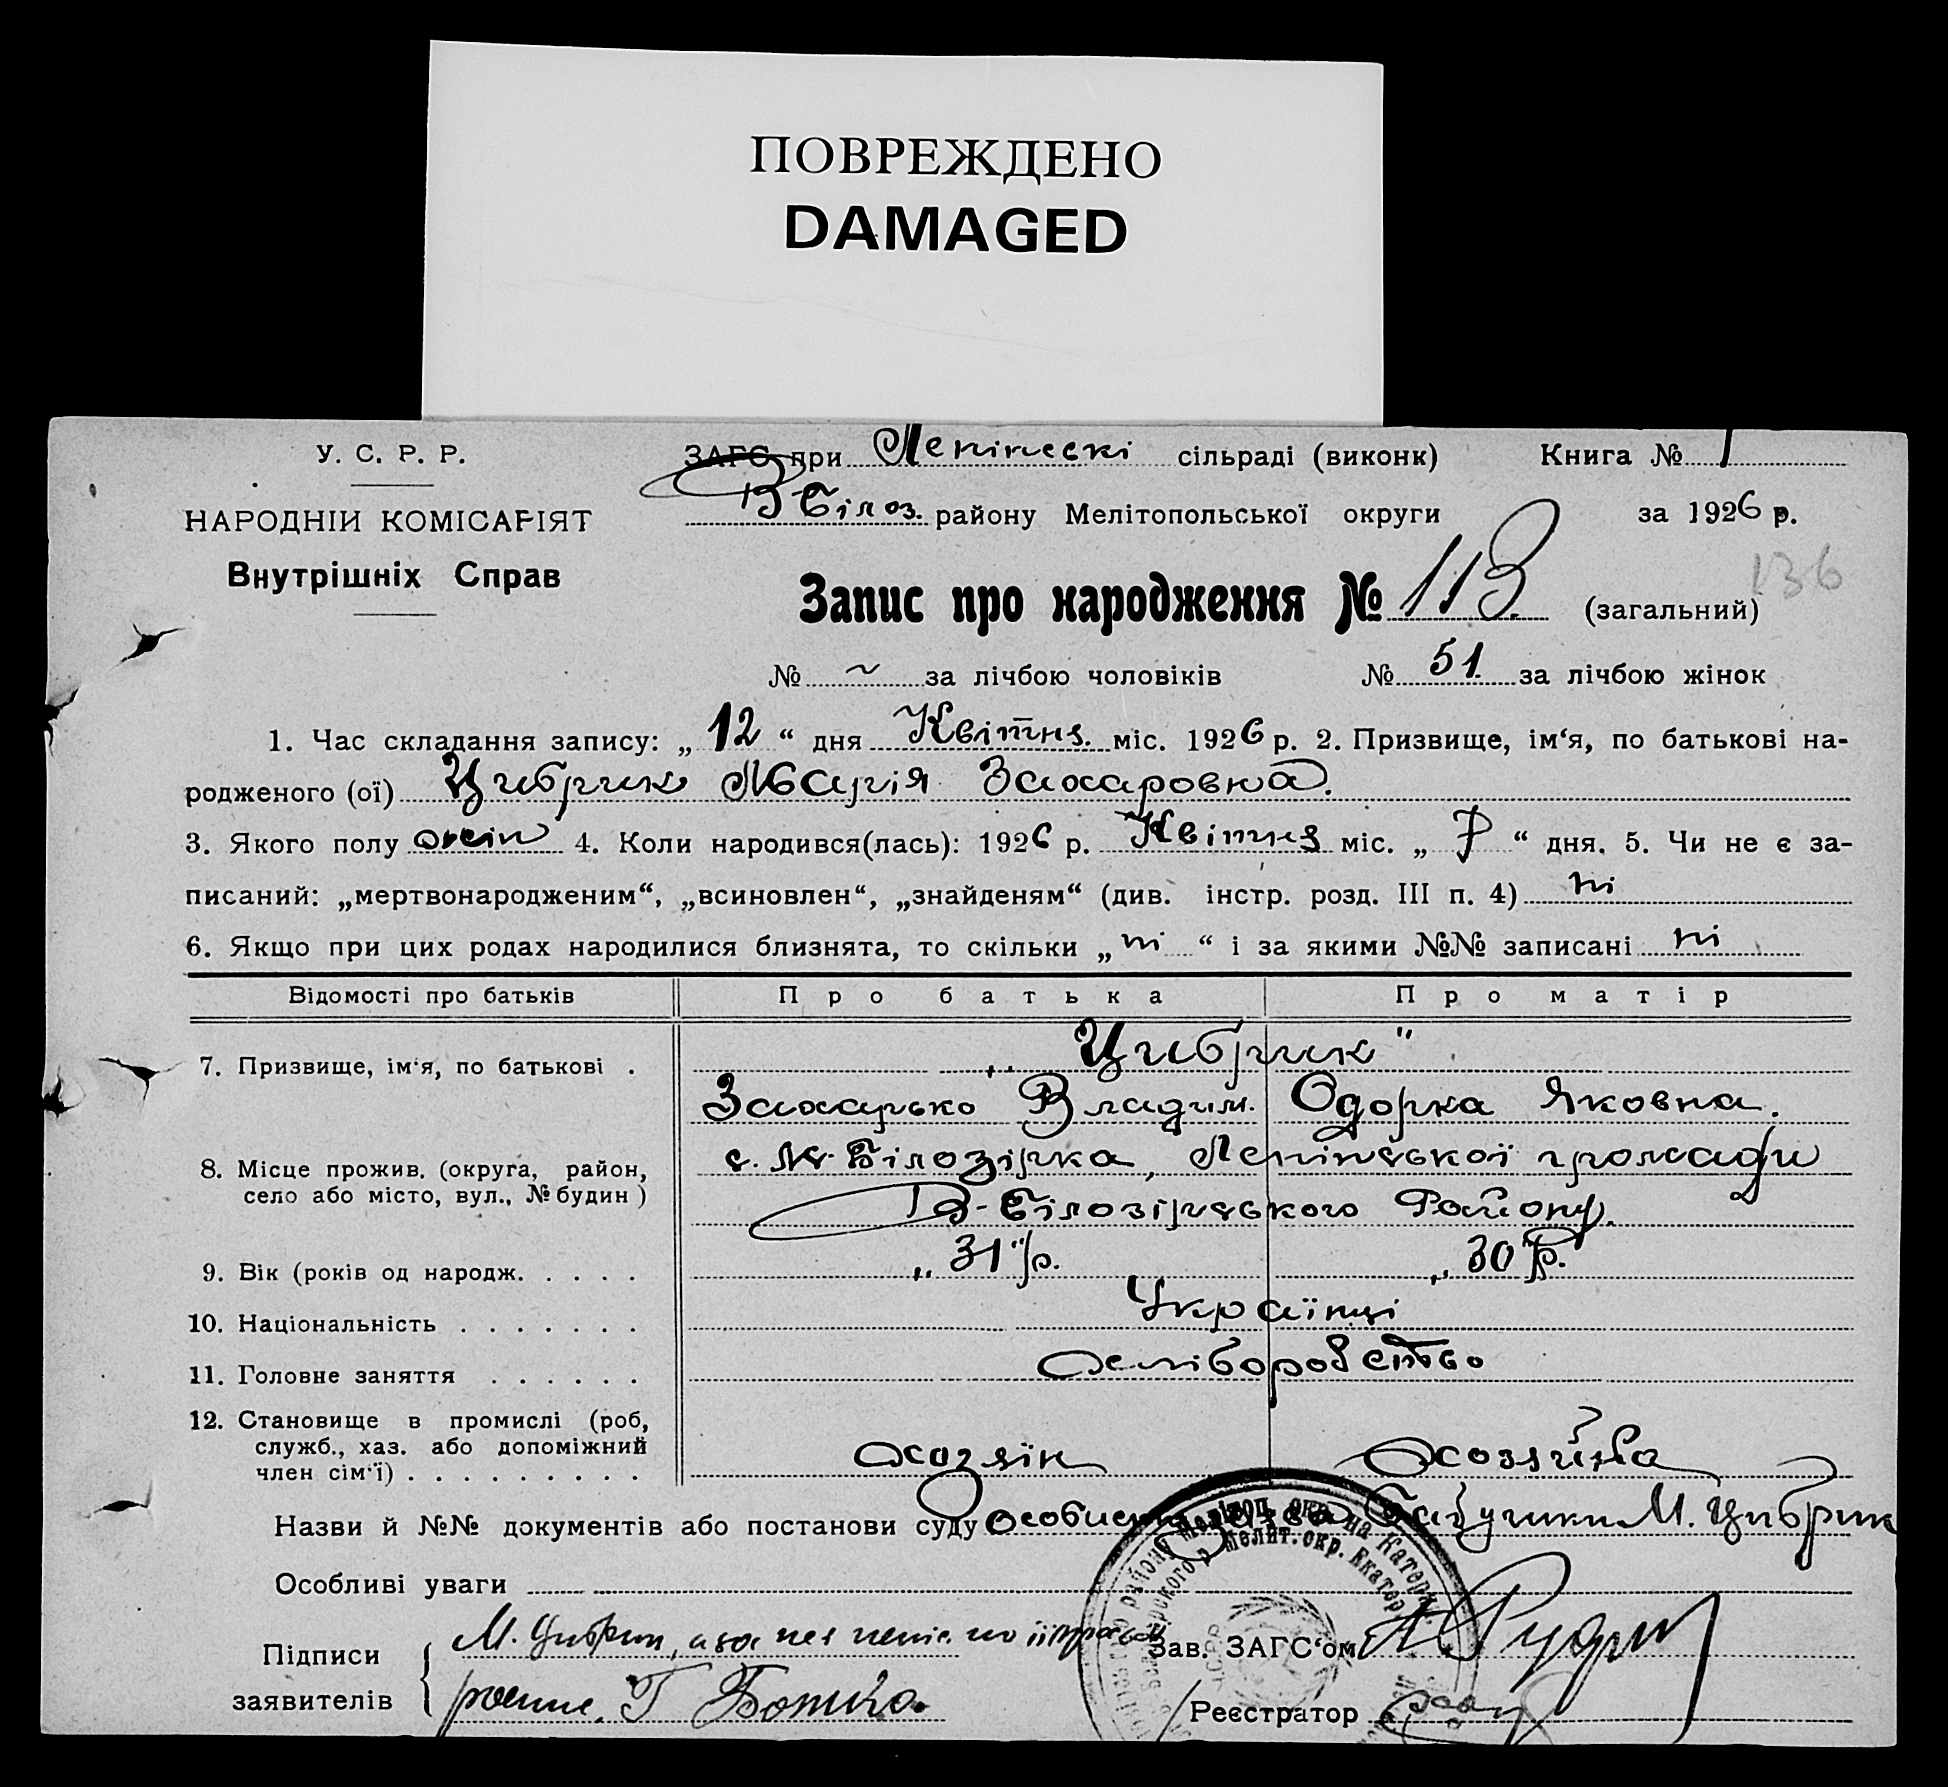 ПОВРЕЖДЕНО
DAMAGED
У. С. Р. Р.
НАРОДНІЙ КОМІСАРІЯТ
Внутрішніх Справ
ЗАГС при Ленінські сільраді (виконк) Книга № 1
В Білоз. району Мелітопольської округи за 1926 р.
136
Запис про народження № 113 (загальний)
№ ~ за лічбою чоловіків № 51. за лічбою жінок
1. Час складання запису: „ 12 “ дня Квітня. міс. 1926 р. 2. Призвище, ім‘я, по батькові на-
родженого (ої) Цибрик Марія Захаровна.
3. Якого полу жін 4. Коли народився(лась): 1926 р. Квітня міс. „ 7 “ дня. 5. Чи не є за-
писаний: „мертвонародженим“, „всиновлен“, „знайденям“ (див. інстр. розд. III п. 4) ні
6. Якщо при цих родах народилися близнята, то скільки „ ні “ і за якими №№ записані ні
Відомості про батьків Про батька Про матір
7. Призвище, ім‘я, по батькові . „ Цибрик "
Захарько Владим. Одорка Яковна.
8. Місце прожив. (округа, район, с. М-Білозірка, Ленінської громади
село або місто, вул., № будин) В-Білозірського Району.
9. Вік (років од народж. . . . . „ 31" р. „ 30" р.
10. Національність . . . . . . . Українці
11. Головне заняття . . . . . . Хліборобство
12. Становище в промислі (роб,
служб., хаз. або допоміжний
член сім‘ї) . . . . . . . . . хозяїн хозяїнка
Назви й №№ документів або постанови суду Особиста М. Цибрик
Особливі уваги
Підписи
заявителів
М. Цибрик, а за
Зав. ЗАГС‘ом
Реєстратор